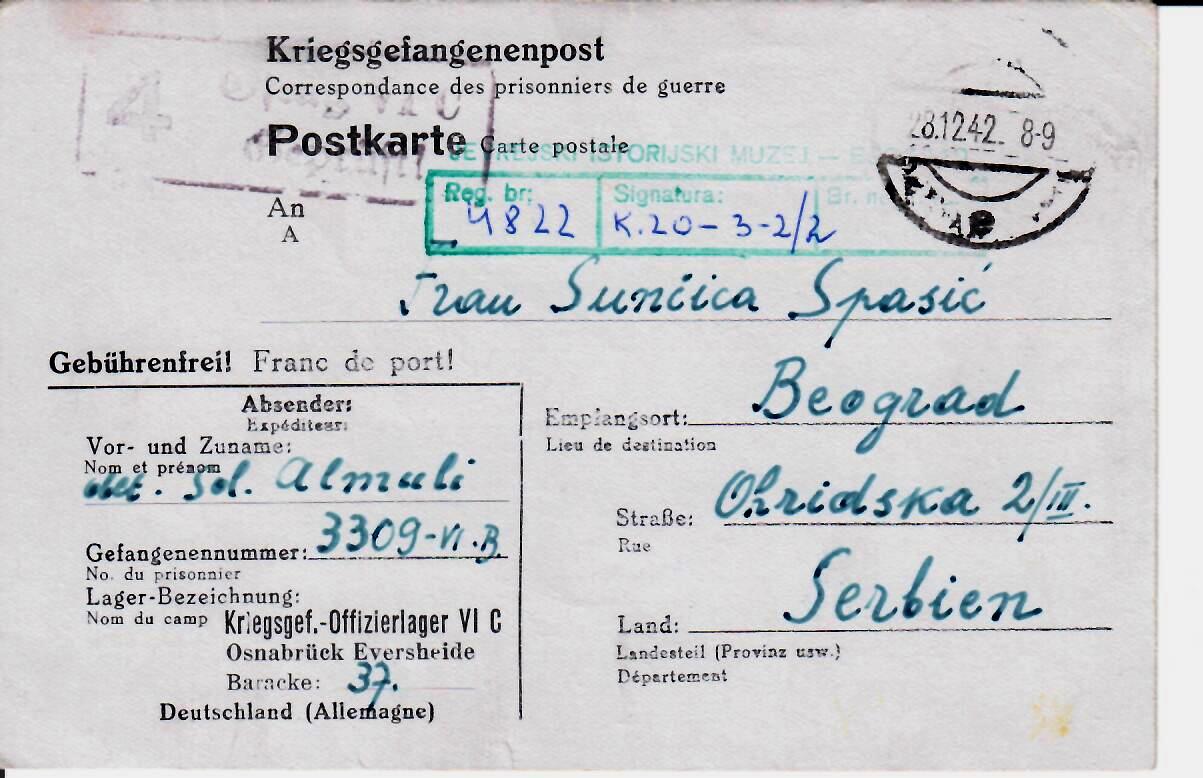 Kriegsgefangenenpost
Correspondance des prisonniers de guerre
Postkarte Carte postale
4
28.12.42. 8-9
JEVREJSKI ISTORIJSKI MUZEJ —
Reg. br: 4822
Signatura: K.20-3-2/2
Br.
An
A
Frau Sunčica Spasić
Gebührenfrei! Franc de port!
Absender:
Expéditeur:
Vor- und Zuname:
Nom et prénom
Sol. Almuli
Gefangenennummer: 3309-VI.B.
No. du prisonnier
Lager-Bezeichnung:
Nom du camp Kriegsgef.-Offizierlager VI C
Osnabrück Eversheide
Baracke: 37.
Deutschland (Allemagne)
Empfangsort: Beograd
Lieu de destination
Straße: Ohridska 2/III.
Rue
Land: Serbien
Landesteil (Provinz usw.)
Département